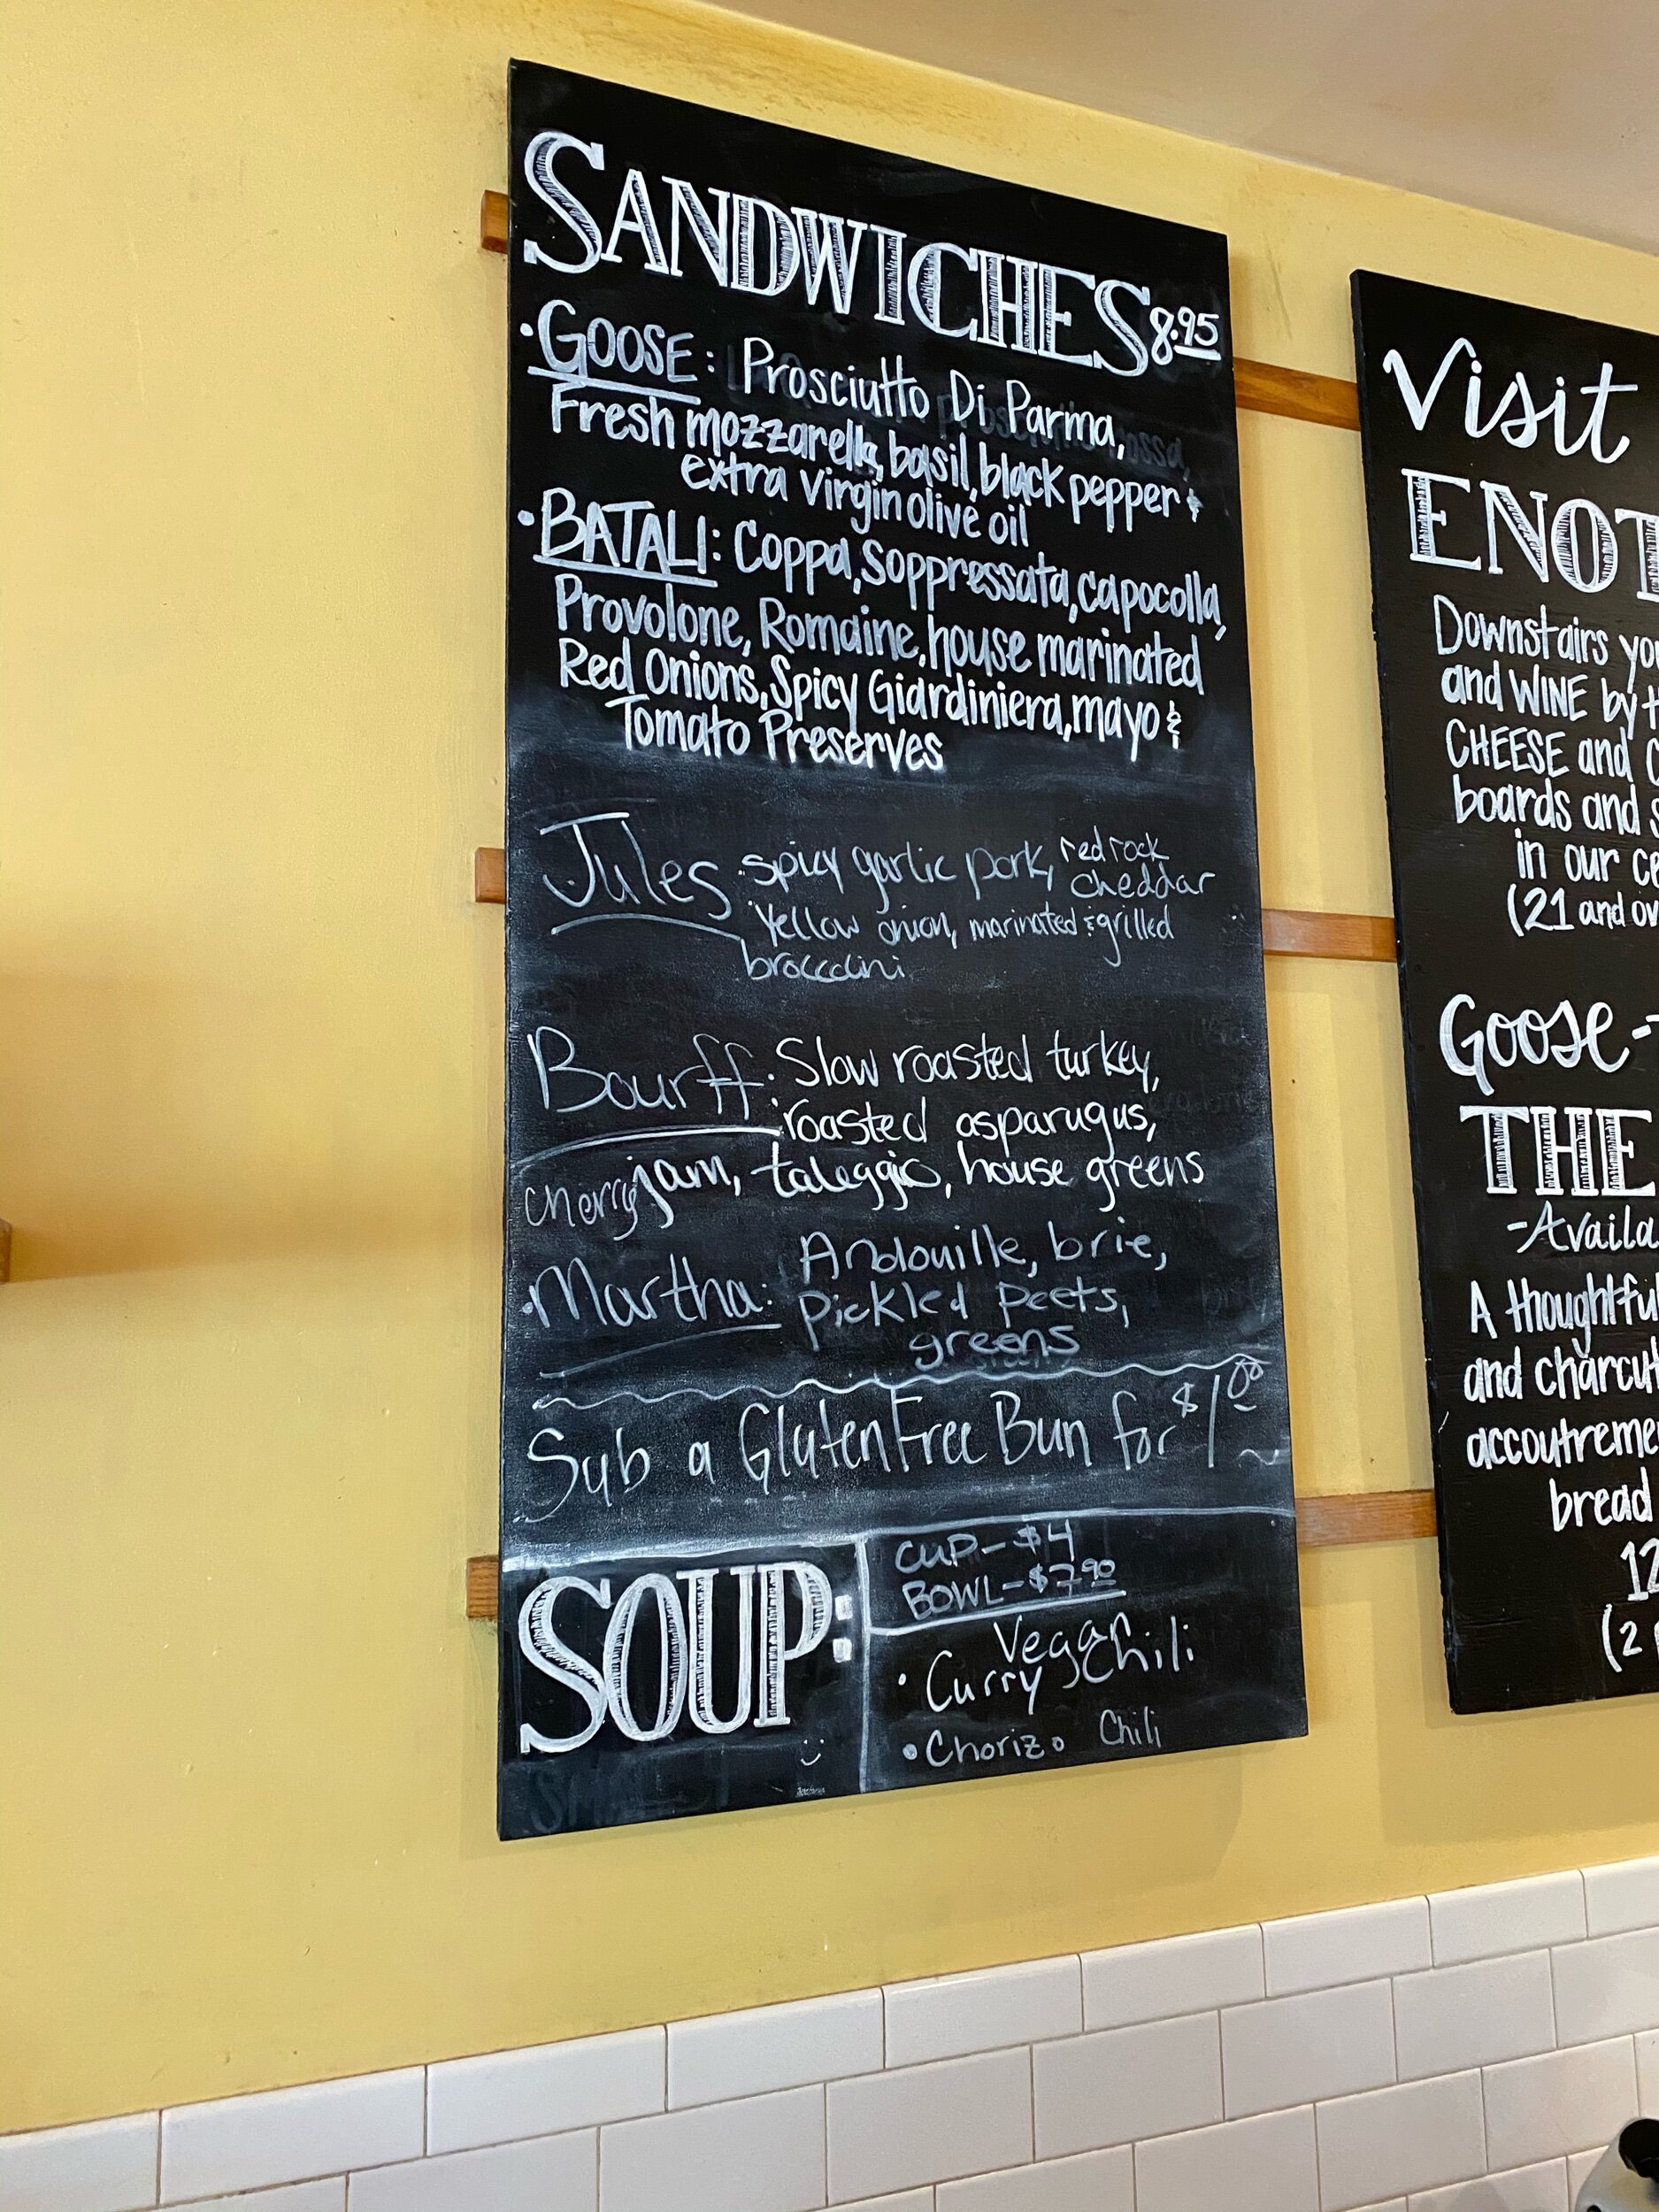 SANDWICHES 8.95
• GOOSE: Prosciutto Di Parma,
Fresh mozzarella, basil, black pepper &
extra virgin olive oil
• BATALI: Coppa, Soppressata, capocolla,
Provolone, Romaine, house marinated
Red Onions, Spicy Giardiniera, mayo &
Tomato Preserves
Jules: spicy garlic pork, red rock
cheddar
yellow onion, marinated & grilled
broccolini
Bourff: Slow roasted turkey,
roasted asparugus,
cherry jam, taleggio, house greens
• Martha: Andouille, brie,
Pickled Peets,
greens
Sub a Gluten Free Bun for $1.00
SOUP:
CUP - $4
BOWL - $7.90
Vegan
• Curry Chili
• Chorizo Chili
Visit
ENOT
Downstairs you
and WINE by t
CHEESE and C
boards and s
in our ce
(21 and ov
Goose-
THE
-Availa
A thoughtful
and charcut
accoutreme
bread
12
(2 p